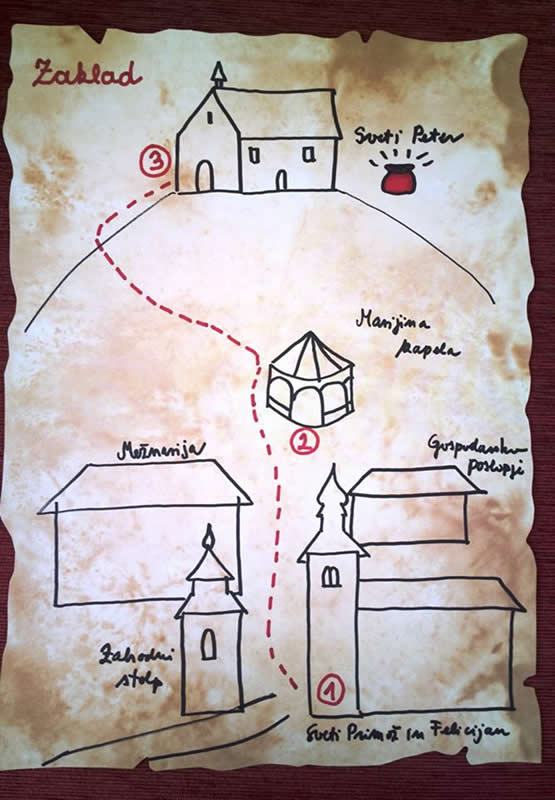 Zaklad
3
Sveti Peter
Marijina
kapela
2
Mežnarija
Gospodarsko
poslopje
Zahodni
stolp
1
Sveti Primož in Felicijan